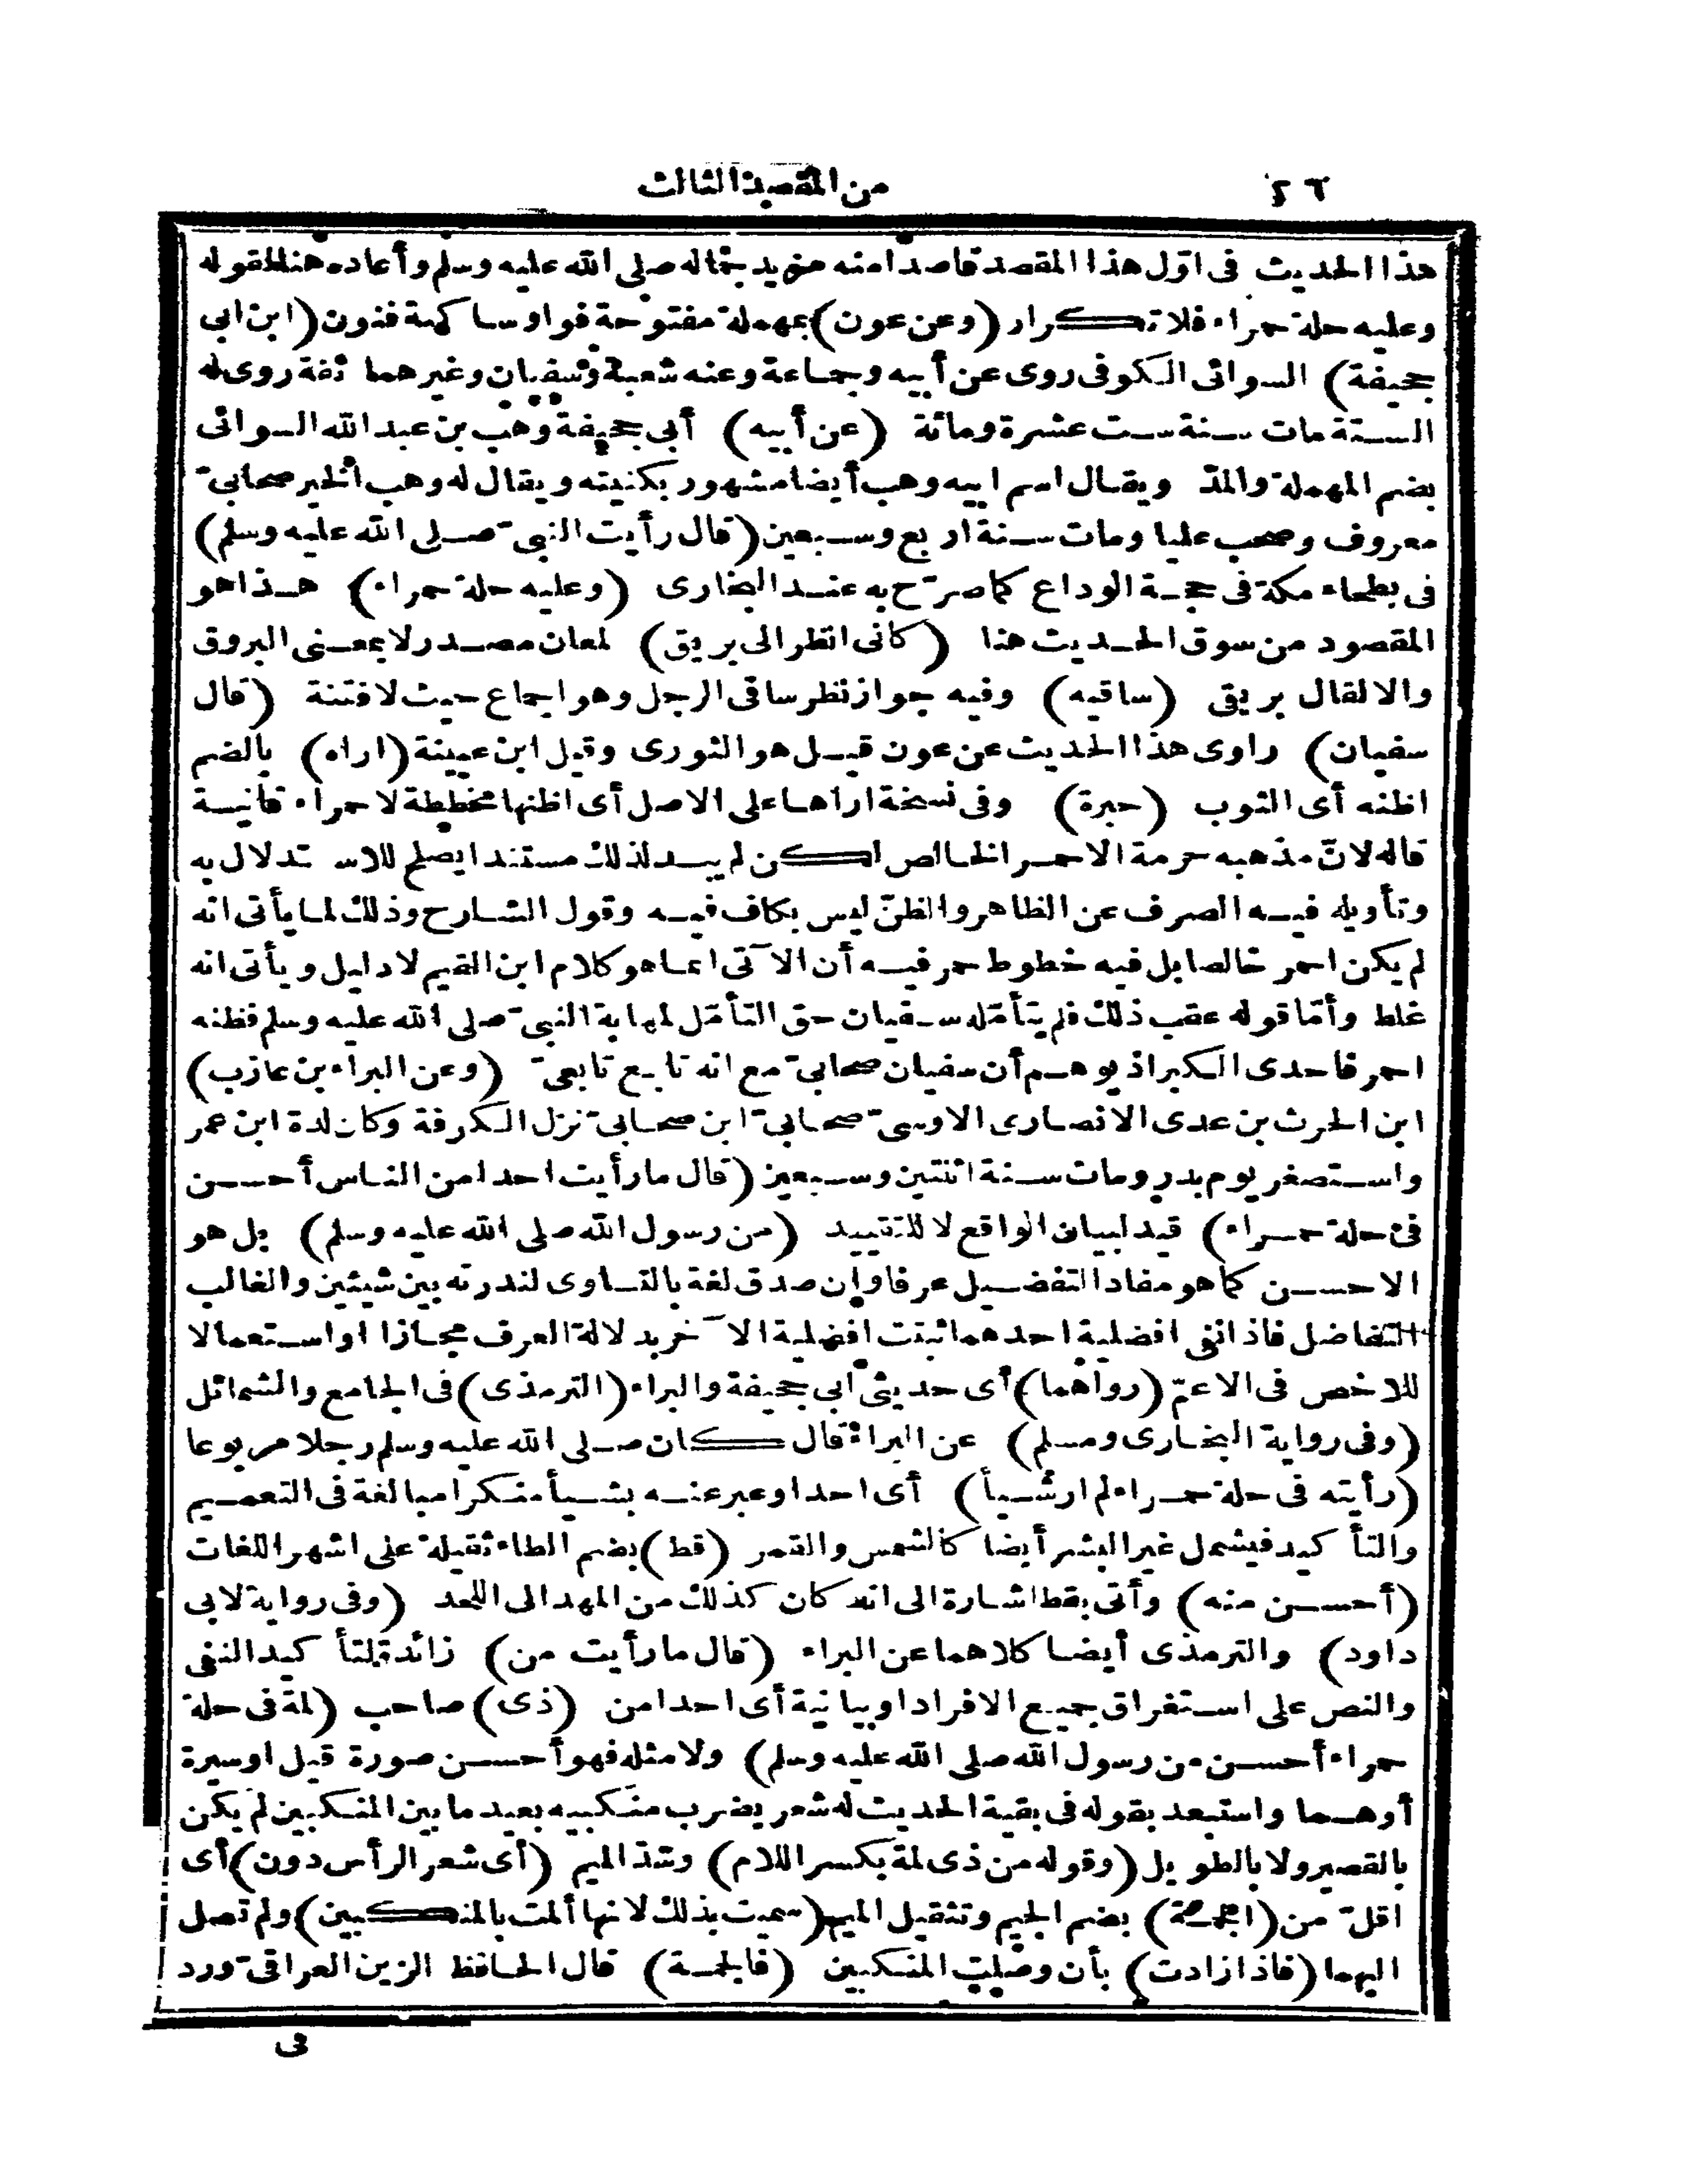 ٢٤ من المقصد الثالث
هذا الحديث فى اوّل هذا المقصد قاصدا منه مزيد جماله صلى الله عليه وسلم وأعاده هنا لقوله
وعليه حلة حمراء فلا تكرار (وعن عون) بمهملة مفتوحة فواو ساكنة فنون (ابن ابى
جحيفة) السوائى الكوفى روى عن أبيه وجماعة وعنه شعبة وسفيان وغيرهما ثقة روى له
الستة مات سنة ست عشرة ومائة (عن أبيه) أبى جحيفة وهب بن عبد الله السوائى
بضم المهملة والمدّ ويقال اسم ابيه وهب أيضا مشهور بكنيته ويقال له وهب الخير صحابىّ
معروف وصحب عليا ومات سنة اربع وسبعين (قال رأيت النبىّ صلى الله عليه وسلم)
فى بطحاء مكة فى حجة الوداع كما صرّح به عند البخارى (وعليه حلة حمراء) هذا هو
المقصود من سوق الحديث هنا (كانى انظر الى بريق) لمعان مصدر لا بمعنى البروق
والا لقال بريقى (ساقيه) وفيه جواز نظر ساقى الرجل وهو اجماع حيث لا فتنة (قال
سفيان) راوى هذا الحديث عن عون قيل هو الثورى وقيل ابن عيينة (اراه) بالضم
اظنه أى الثوب (حبرة) وفى نسخة اراها على الاصل أى اظنها مخططة لا حمراء قانية
قاله لانّ مذهبه حرمة الاحمر الخالص لكن لم يبد لذلك مستندا يصلح للاستدلال به
وتأويله فيه الصرف عن الظاهر والظنّ ليس بكاف فيه وقول الشارح وذلك لما يأتى انه
لم يكن احمر خالصا بل فيه خطوط حمر فيه أن الآتى انما هو كلام ابن القيم لا دليل ويأتى انه
غلط وأمّا قوله عقب ذلك فلم يتأمّله سفيان حق التأمّل لمهابة النبىّ صلى الله عليه وسلم فظنه
احمر فاحدى الكبر اذ يوهم أن سفيان صحابىّ مع انه تابع تابعىّ (وعن البراء بن عازب)
ابن الحرث بن عدى الانصارى الاوسىّ صحابىّ ابن صحابىّ نزل الكوفة وكان لدة ابن عمر
واستصغر يوم بدر ومات سنة اثنتين وسبعين (قال ما رأيت احدا من الناس أحسن
فى حلة حمراء) قيد لبيان الواقع لا للتقييد (من رسول الله صلى الله عليه وسلم) بل هو
الاحسن كما هو مفاد التفضيل عرفا وان صدق لغة بالتساوى لندرته بين شيئين والغالب
التفاضل فاذا نفى افضلية احدهما ثبتت افضلية الآخر بدلالة العرف مجازا او استعمالا
للاخص فى الاعمّ (رواهما) أى حديثى أبى جحيفة والبراء (الترمذى) فى الجامع والشمائل
(وفى رواية البخارى ومسلم) عن البراء قال كان صلى الله عليه وسلم رجلا مربوعا
(رأيته فى حلة حمراء لم ار شيأ) أى احدا وعبر عنه بشيأ منكرا مبالغة فى التعميم
والتأكيد فيشمل غير البشر أيضا كالشمس والقمر (قط) بضم الطاء ثقيلة على اشهر اللغات
(أحسن منه) وأتى بقط اشارة الى انه كان كذلك من المهد الى اللحد (وفى رواية لابى
داود) والترمذى أيضا كلاهما عن البراء (قال ما رأيت من) زائدة لتأكيد النفى
والنص على استغراق جميع الافراد او بيانية أى احدا من (ذى) صاحب (لمة فى حلة
حمراء أحسن من رسول الله صلى الله عليه وسلم) ولا مثله فهو أحسن صورة قيل او سيرة
أوهما واستبعد بقوله فى بقية الحديث له شعر يضرب منكبيه بعيد ما بين المنكبين لم يكن
بالقصير ولا بالطويل (وقوله من ذى لمة بكسر اللام) وشذ الميم (أى شعر الرأس دون) أى
اقلّ من (الجمة) بضم الجيم وتثقيل الميم (سميت بذلك لانها ألمت بالمنكبين) ولم تصل
اليهما (فاذا زادت) بأن وصلت المنكبين (فالجمة) قال الحافظ الزين العراقىّ ورد
فى